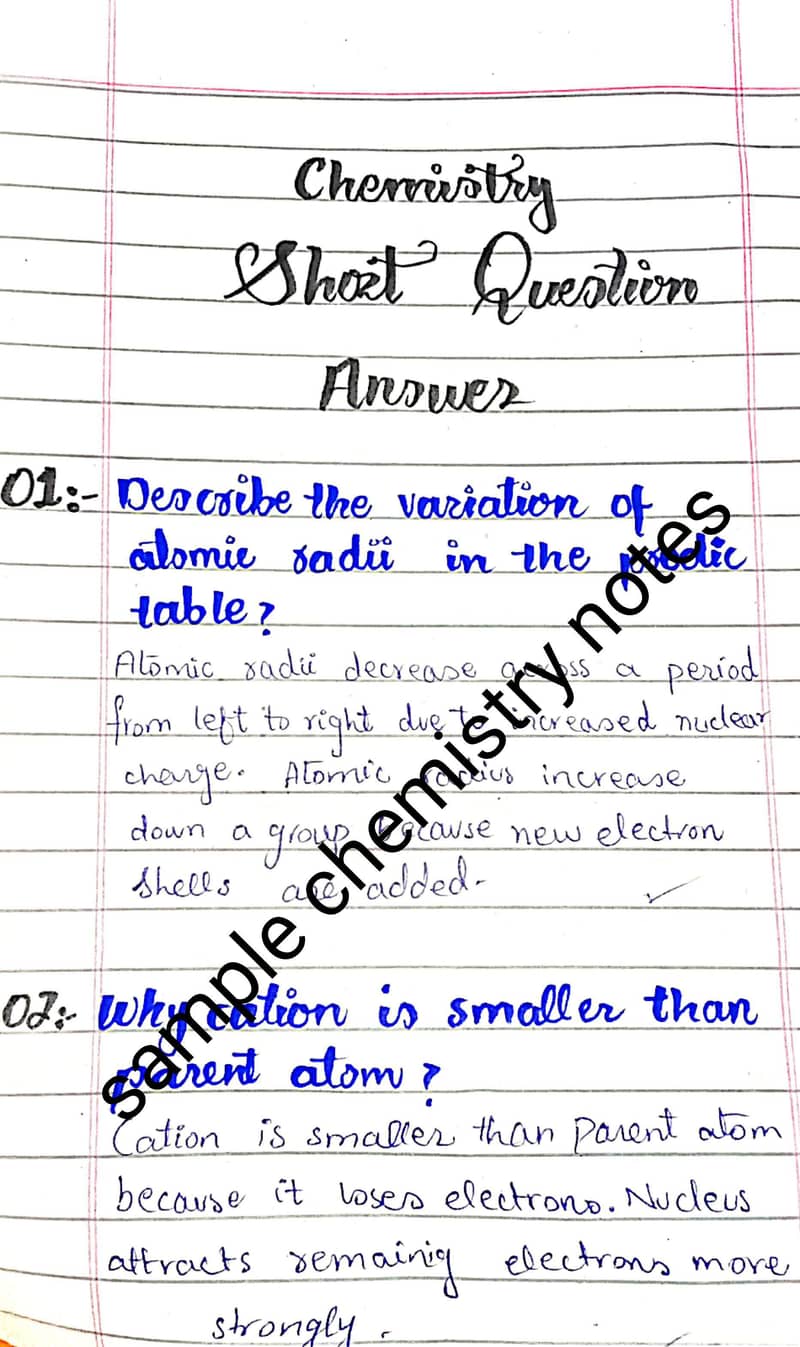 Chemistry
Short Question
Answer
01:- Describe the variation of
atomic radii in the
table?
Atomic radii decrease across a period
from left to right due to increased nuclear
charge. Atomic radius increase
down a group because new electron
shells are added.
02:- Why cation is smaller than
parent atom?
Cation is smaller than parent atom
because it loses electrons. Nucleus
attracts remainig electrons more
strongly.
sample chemistry notes